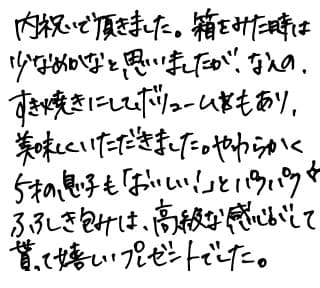 内祝いで頂きました。箱をみた時は
少なめかなと思いましたが、なんの、
すき焼きにしてボリューム もあり、
美味しくいただきました。やわらかく
5才の息子も「おいしい!」とパクパク♪
ふろしき包みは、高級な感じがして
貰って嬉しいプレゼントでした。